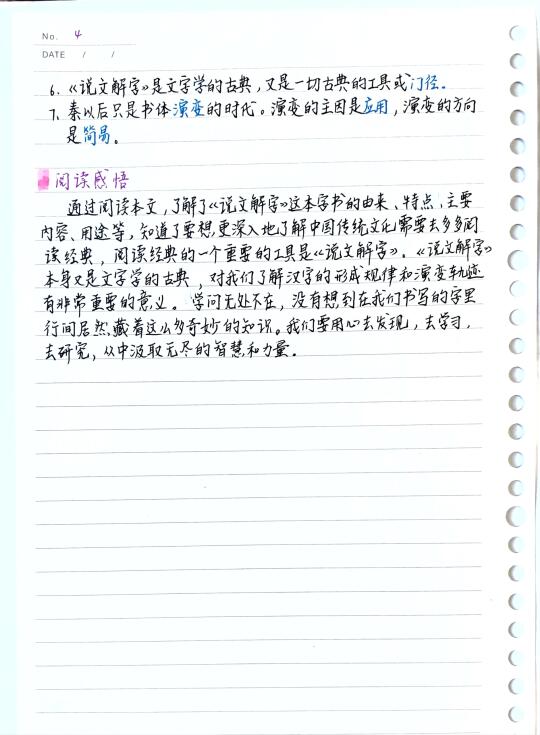 No. 4
DATE / /
6、《说文解字》是文字学的古典，又是一切古典的工具或门径。
7、秦以后只是书体演变的时代。演变的主因是应用，演变的方向
是简易。
阅读感悟
通过阅读本文，了解了《说文解字》这本字书的由来、特点、主要
内容、用途等，知道了要想更深入地了解中国传统文化需要去多多阅
读经典，阅读经典的一个重要的工具是《说文解字》。《说文解字》
本身又是文字学的古典，对我们了解汉字的形成规律和演变轨迹
有非常重要的意义。学问无处不在，没有想到在我们书写的字里
行间居然藏着这么多奇妙的知识。我们要用心去发现，去学习，
去研究，从中汲取无尽的智慧和力量。